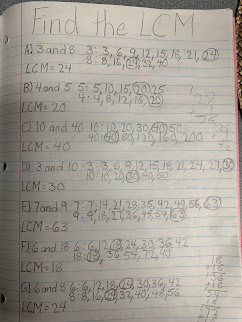 Find the LCM
A) 3 and 8 3: 3, 6, 9, 12, 15, 18, 21, 24
8: 8, 16, 24, 32, 40
LCM = 24
B) 4 and 5 5: 5, 10, 15, 20, 25
4: 4, 8, 12, 16, 20
LCM = 20
C) 10 and 40 10: 10, 20, 30, 40, 50
40: 40, 80, 120, 160, 200
LCM = 40
D) 3 and 10 3: 3, 6, 9, 12, 15, 18, 21, 24, 27, 30
10: 10, 20, 30, 40, 50
LCM = 30
E) 7 and 9 7: 7, 14, 21, 28, 35, 42, 49, 56, 63
9: 9, 18, 27, 36, 45, 54, 63
LCM = 63
F) 6 and 18 6: 6, 12, 18, 24, 30, 36, 42
18: 18, 36, 54, 72, 90
LCM = 18
G) 6 and 8 6: 6, 12, 18, 24, 30, 36, 42
8: 8, 16, 24, 32, 40, 48, 56
LCM = 24